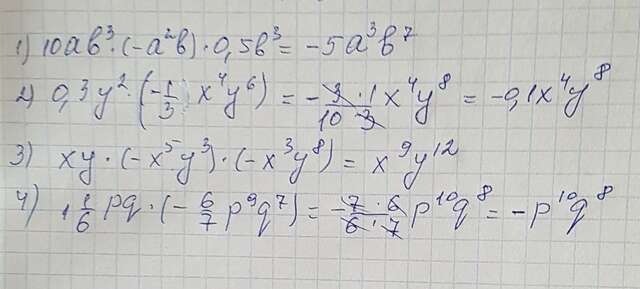 1) 10ab³·(-a²b)·0,5b³ = -5a³b⁷
2) 0,3y²·(-1/3 x⁴y⁶) = -(3·1)/(10·3) x⁴y⁸ = -0,1x⁴y⁸
3) xy·(-x⁵y³)·(-x³y⁸) = x⁹y¹²
4) 1 1/6 pq·(-6/7 p⁹q⁷) = -(7·6)/(6·7) p¹⁰q⁸ = -p¹⁰q⁸